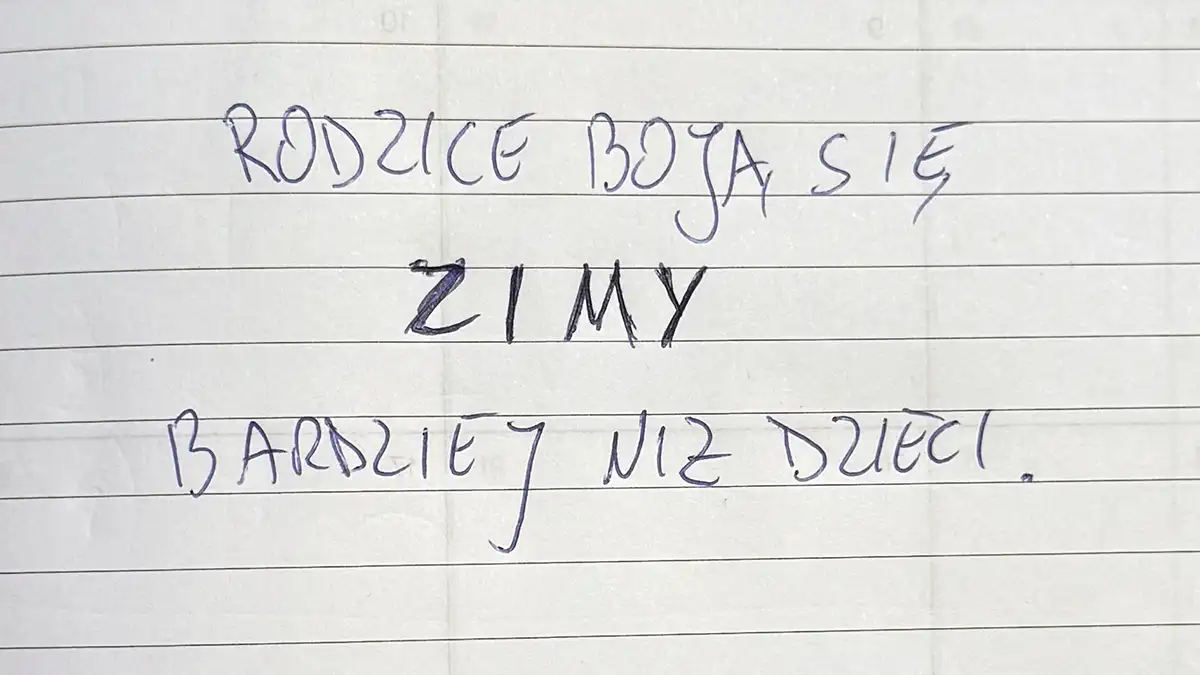 RODZICE BOJĄ SIĘ
ZIMY
BARDZIEJ NIŻ DZIECI.